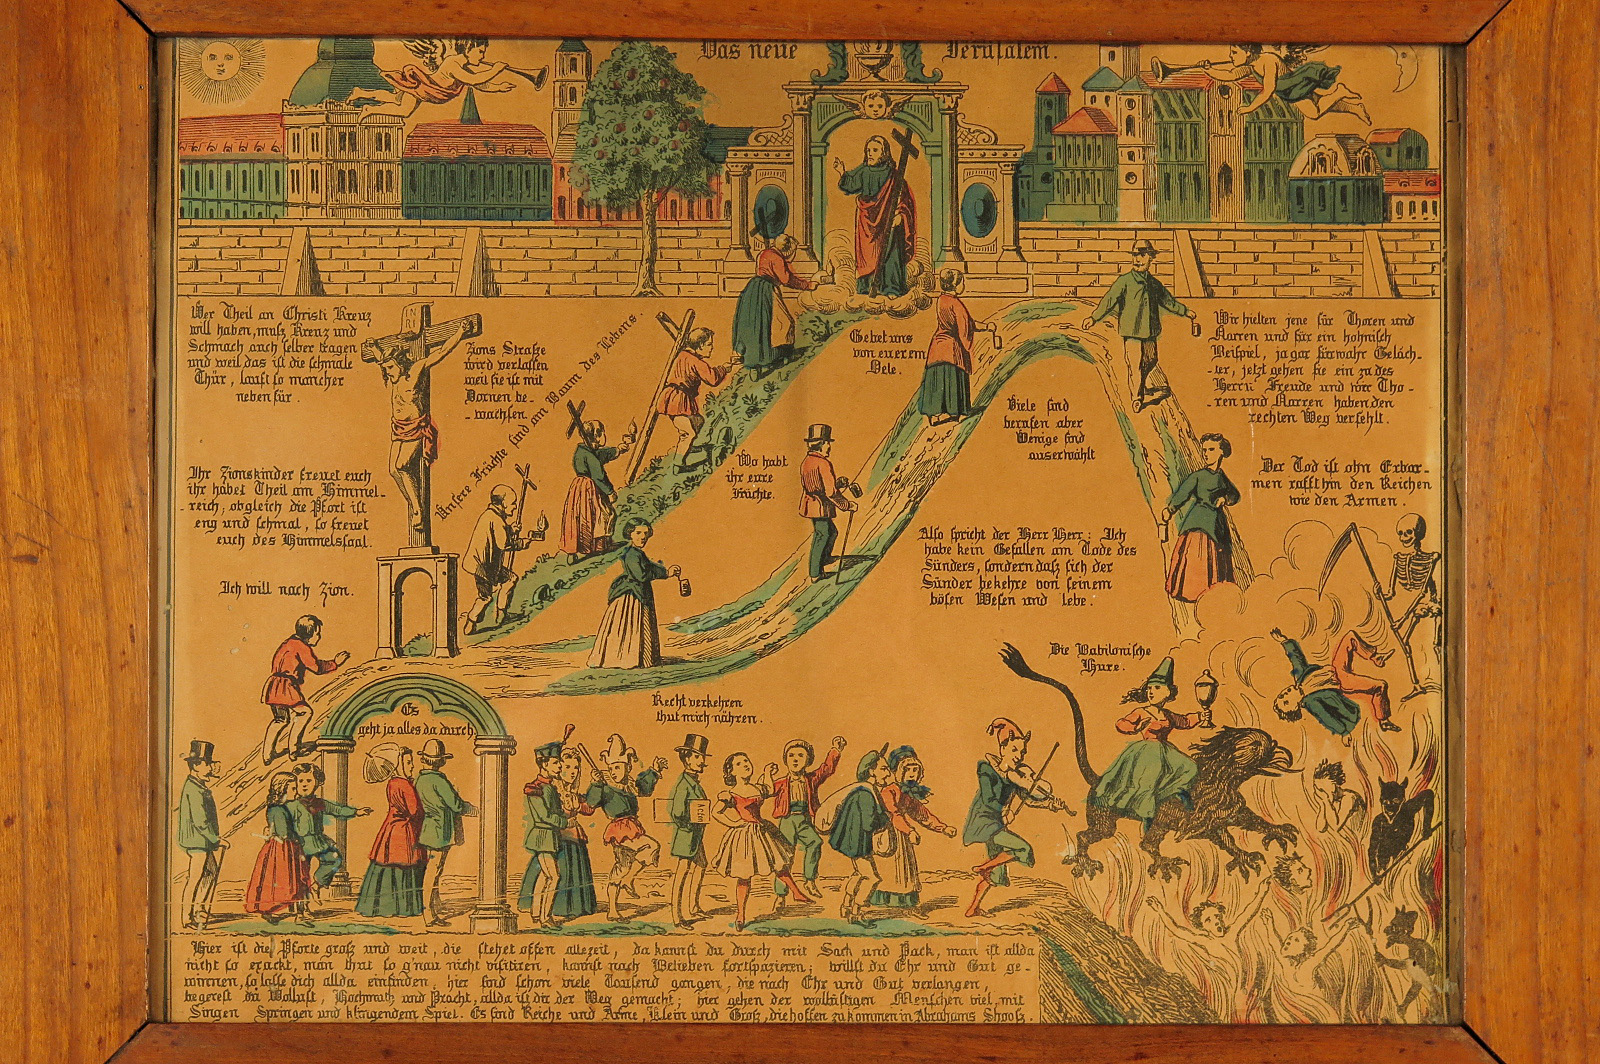 Das neue Jerusalem.
Wer Theil an Christi Kreuz
will haben, musz Kreuz und
Schmach auch selber tragen
und weil das ist die schmale
Thür, lauft so mancher
neben für.
INRI
Zions Straße
wird verlassen
weil sie ist mit
Dornen be-
-wachsen.
Unsere Früchte sind am Baum des Lebens.
Gebet uns
von eurem
Oele.
Wir hielten jene für Thoren und
Narren und für ein hohnisch
Beispiel, ja gar fürwahr Geläch-
-ter, jetzt gehen sie ein zu des
Herrn Freude und wir Tho-
-ren und Narren haben den
rechten Weg verfehlt.
Viele sind
berufen aber
Wenige sind
auserwählt
Ihr Zionskinder freuet euch
ihr habet Theil am Himmel-
-reich, obgleich die Pfort ist
eng und schmal, so freuet
euch des Himmelssaal.
Wo habt
ihr eure
Früchte.
Der Tod ist ohn Erbar-
men rafft hin den Reichen
wie den Armen.
Also spricht der Herr Herr: Ich
habe kein Gefallen am Tode des
Sünders, sondern dasz sich der
Sünder bekehre von seinem
bösen Wesen und lebe.
Ich will nach Zion.
Die Babilonische
Hure.
Recht verkehren
thut mich nähren.
Es
geht ja alles da durch.
Acten
Hier ist die Pforte grosz und weit, die stehet offen allezeit, da kannst du durch mit Sack und Pack, man ist allda
nicht so exackt, man thut so g'nau nicht visitiren, kannst nach Belieben fortspazieren; willst du Ehr und Gut ge-
winnen, so lasse dich allda einfinden, hier sind schon viele Tausend gangen, die nach Ehr und Gut verlangen,
begerest du Wollust, Hochmuth und Pracht, allda ist dir der Weg gemacht; hier gehen der wollüstigen Menschen viel, mit
Singen Springen und klingendem Spiel. Es sind Reiche und Arme, Klein und Grosz, die hoffen zu kommen in Abrahams Shoosz.